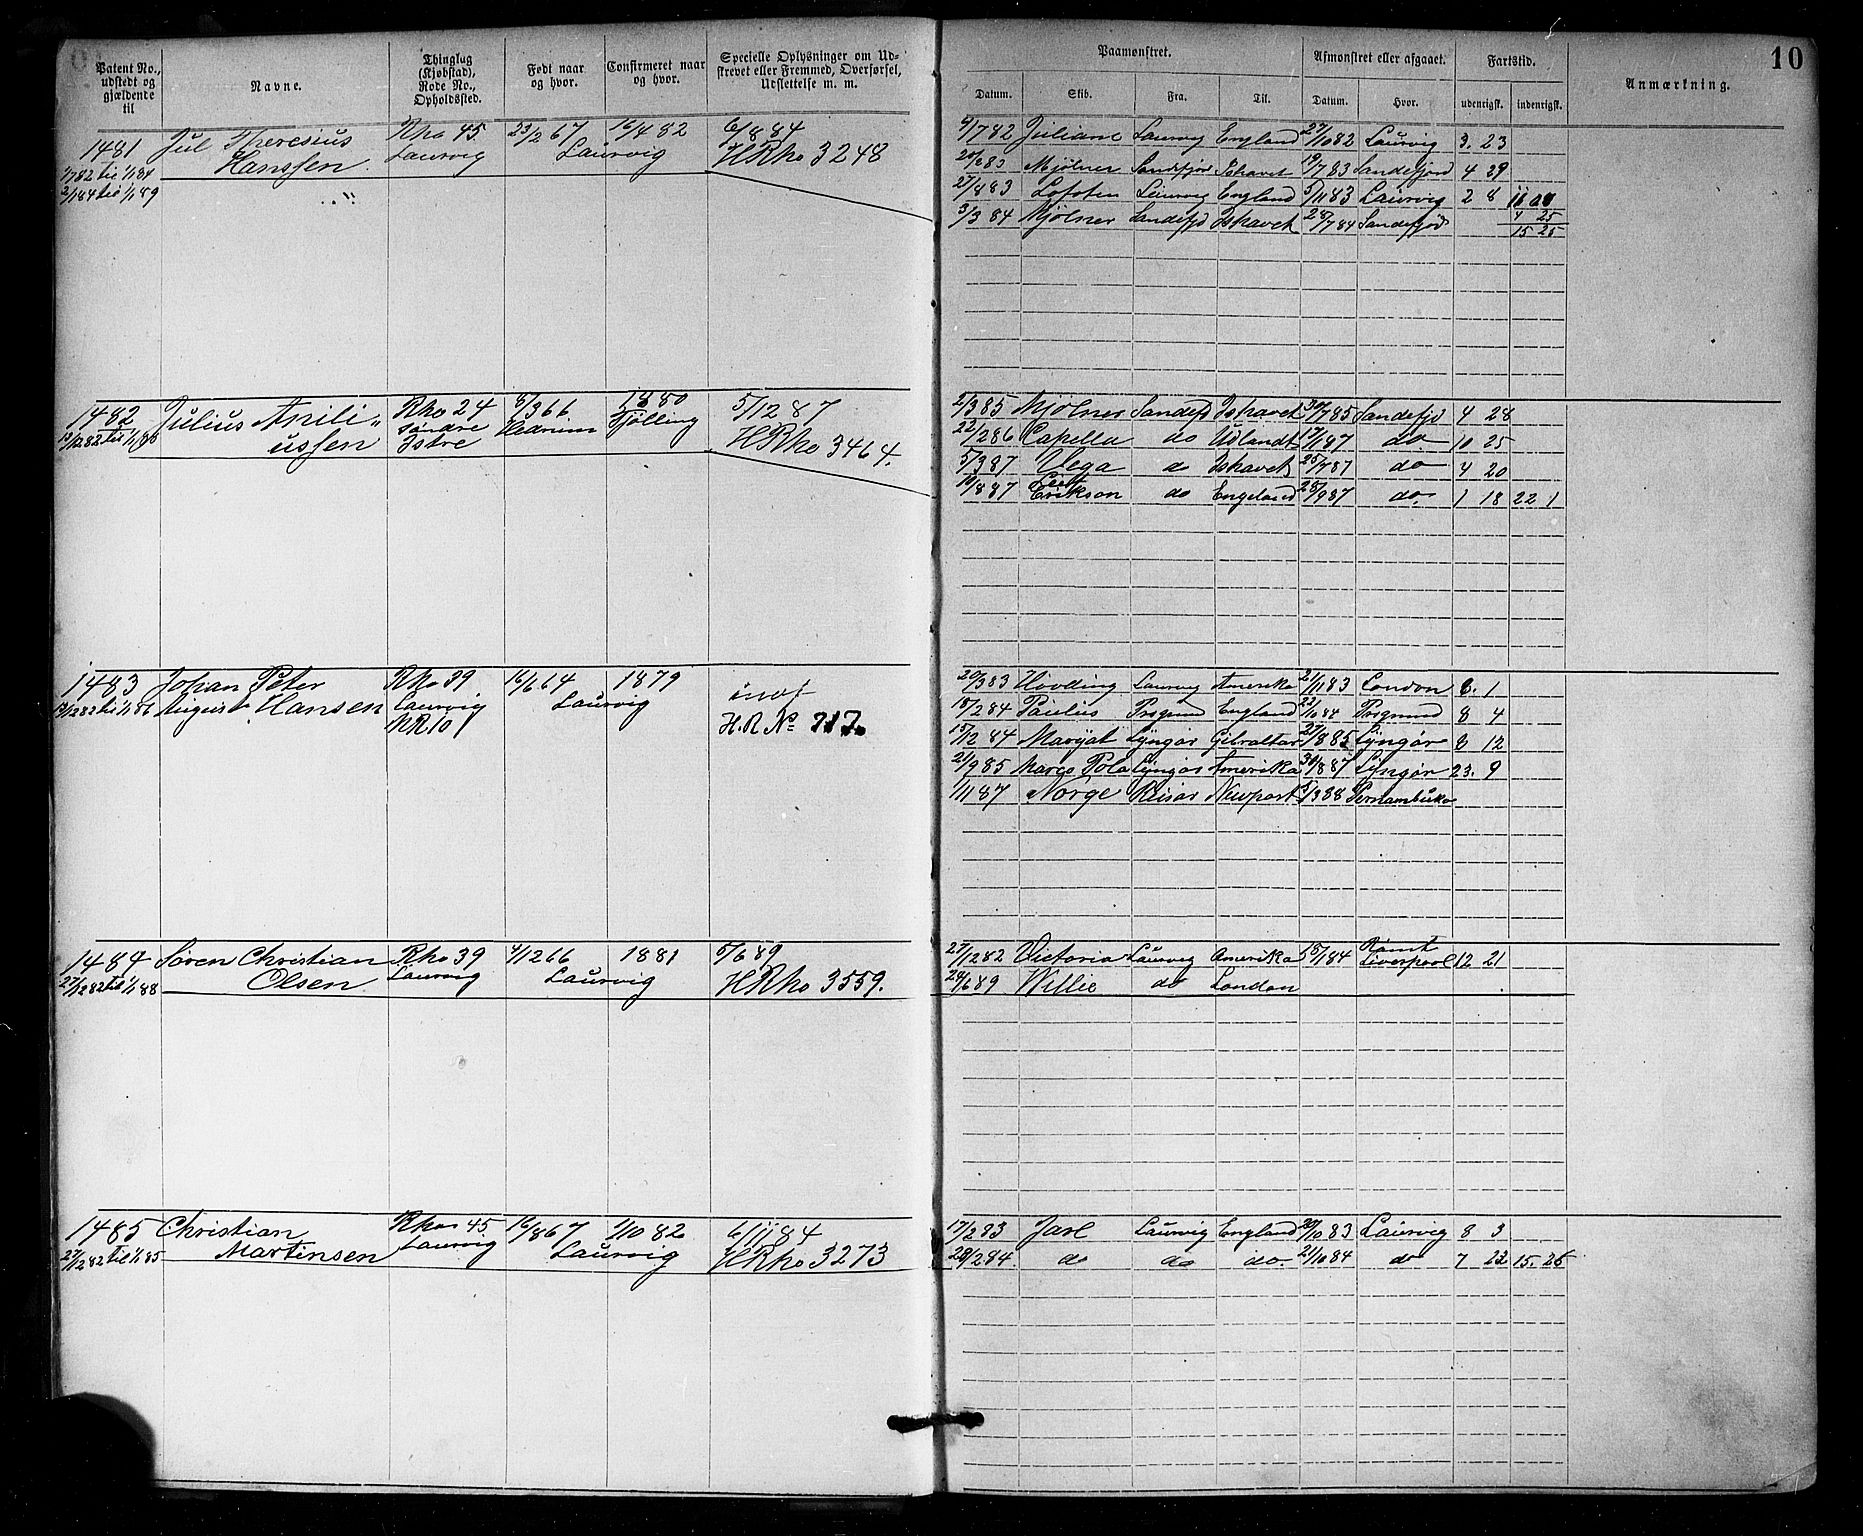 10
Patent No., udstedt og gjældende til
Navne.
Thinglag (Kjøbstad), Rode No., Opholdssted.
Født naar og hvor.
Confirmeret naar og hvor.
Specielle Oplysninger om Udskrevet eller Fremmed, Overførsel, Udslettelse m. m.
Paamønstret.
Afmønstret eller afgaaet.
Fartstid.
Anmærkning.
Datum. Skib. Fra. Til. Datum. Hvor. udenrigsk. indenrigsk.
1481 Jul Theresius Rho 45 23/2 67 16/4 82 6/8 84
Hanssen Laurvig Laurvig HRho 3248
1/7 82 til 1/1 84
2/1 84 til 1/1 89
4/7 82 Juliane Laurvig England 27/10 82 Laurvig 3. 23
20/6 83 Mjölner Sandefjør Ishavet 19/7 83 Sandefjord 4 29
27/8 83 Lofoten Laurvig England 5/11 83 Laurvig 2 8
3/3 84 Mjölner Sandefjd Ishavet 28/7 84 Sandefjød 4 25
15 25
1482 Julius Anili= Rho 24 8/3 66 1880 5/12 87
ussen Søndre Istre Hedrum Tjølling HRho 3464.
2/3 85 Mjölner Sandefjd Ishavet 30/7 85 Sandefjd 4 28
22/2 86 Capella do Udlandt 17/1 87 do 10 25
5/3 87 Vega do Ishavet 25/7 87 do 4 20
10/8 87 Leif Erikson do Engeland 28/9 87 do. 1 18 22 1
1483 Johan Peter Rho 39 16/6 64 1879
August Hansen Laurvig Laurvig indf
NR 10 H.R No 717.
20/3 83 Høvding Laurvig Amerika 21/11 83 London 8. 1
18/2 84 Paulus Prsgrund England 22/10 84 Prsgrund 8 4
15/12 84 Maryat Lyngør Gibraltar 27/8 85 Lyngør 8 12
21/9 85 Marco Polo Lyngør Amerika 30/8 87 Lyngør 23. 9
1/11 87 Norge Risør Newport 1/3 88 Pernambuko
1484 Søren Christian Rho 39 4/12 66 1881 5/6 89
Olsen Laurvig Laurvig HRho 3559.
27/12 82 til 1/1 88
27/12 82 Victoria Laurvig Amerika 15/1 84 Rømt Liverpool 12 21
24/6 89 Willie do London
1485 Christian Rho 45 16/8 67 1/10 82 6/11 84
Martinsen Laurvig Laurvig HRho 3273
27/12 82 til 1/1 85
17/2 83 Jarl Laurvig England 20/10 83 Laurvig 8 3
28/2 84 do do do. 21/10 84 do 7 23 15. 26